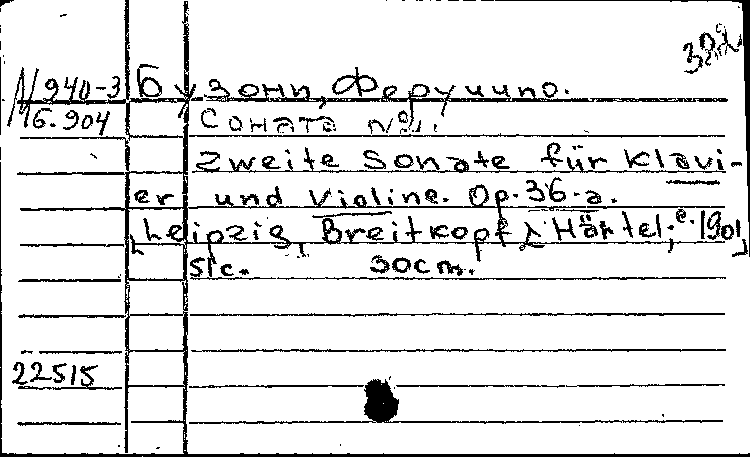 М 940-3 Бузони, Феруччио.
Б. 904 Соната №2.
Zweite Sonate für Klavi-
er und Violine. Op. 36-a.
[Leipzig, Breitkopf & Härtel; c. 1901]
51c. 30cm.
22515